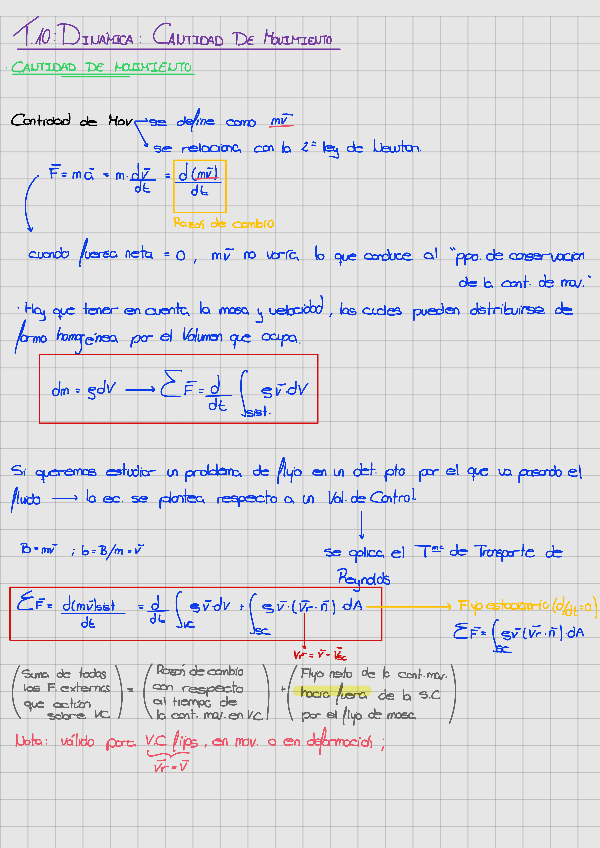 T.10: DINÁMICA: CANTIDAD DE MOVIMIENTO
· CANTIDAD DE MOVIMIENTO
Cantidad de Mov → se define como mv̄
se relaciona con la 2ª ley de Newton.
F̄ = mā = m·dv̄/dt = d(mv̄)/dt
Razón de cambio
cuando fuersa neta = 0, mv̄ no varía, lo que conduce al "ppo. de conservación
de la cant. de mov."
· Hay que tener en cuenta la masa y velocidad, las cuales pueden distribuirse de
forma homgénea por el Volumen que ocupa.
dm = ρdV → ΣF̄ = d/dt ∫sist. ρv̄·dV
Si queremos estudiar un problema de flujo en un det. pto por el que va pasando el
fluido → la ec. se plantea respecto a un Vol. de Control.
B = mv̄ ; b = B/m = v̄
se aplica el Tᵐᵃ de Transporte de
Reynolds
ΣF̄ = d(mv̄)sist/dt = d/dt ∫VC ρv̄·dV + ∫SC ρv̄·(v̄r·n̄) dA → Flujo estacionario (d/dt=0)
ΣF̄ = ∫SC ρv̄(v̄r·n̄) dA
v̄r = v̄ - v̄sc
(Suma de todas las F externas que actúan sobre VC) = (Razón de cambio con respecto al tiempo de la cant. mov. en VC) + (Flujo neto de la cant. mov. hacia fuera de la S.C por el flujo de masa)
Nota: válido para V.C fijos, en mov. o en deformación;
v̄r = v̄